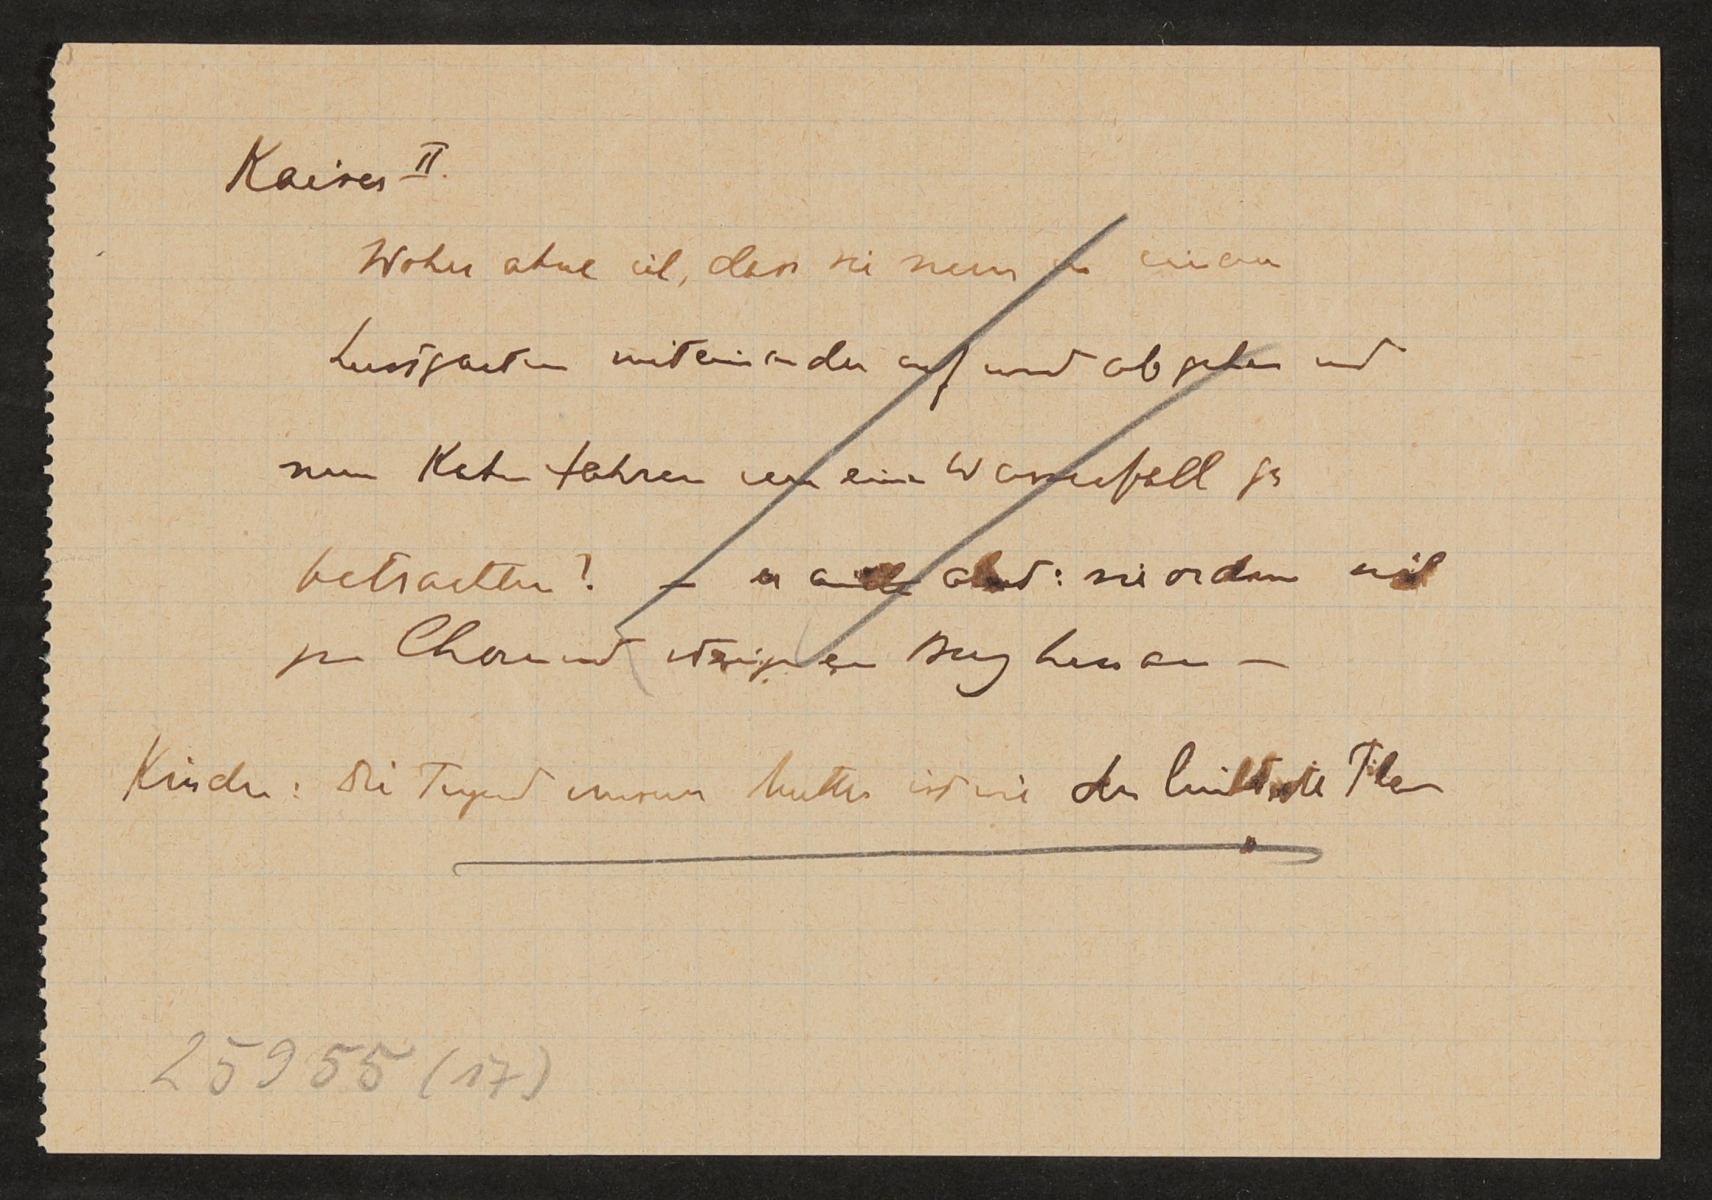 Kaiser II.
Woher ahne ich, dass sie nun in einem
Lustgarten miteinander auf und abgehen und
nun Kahn fahren um einen Wasserfall zu
betrachten? — er auch ahnt: sie ordnen sich
zum Chor und steigen den Berg hinan —
Kinder: Die Tugend unserer Mutter ist wie der
25955 (17)